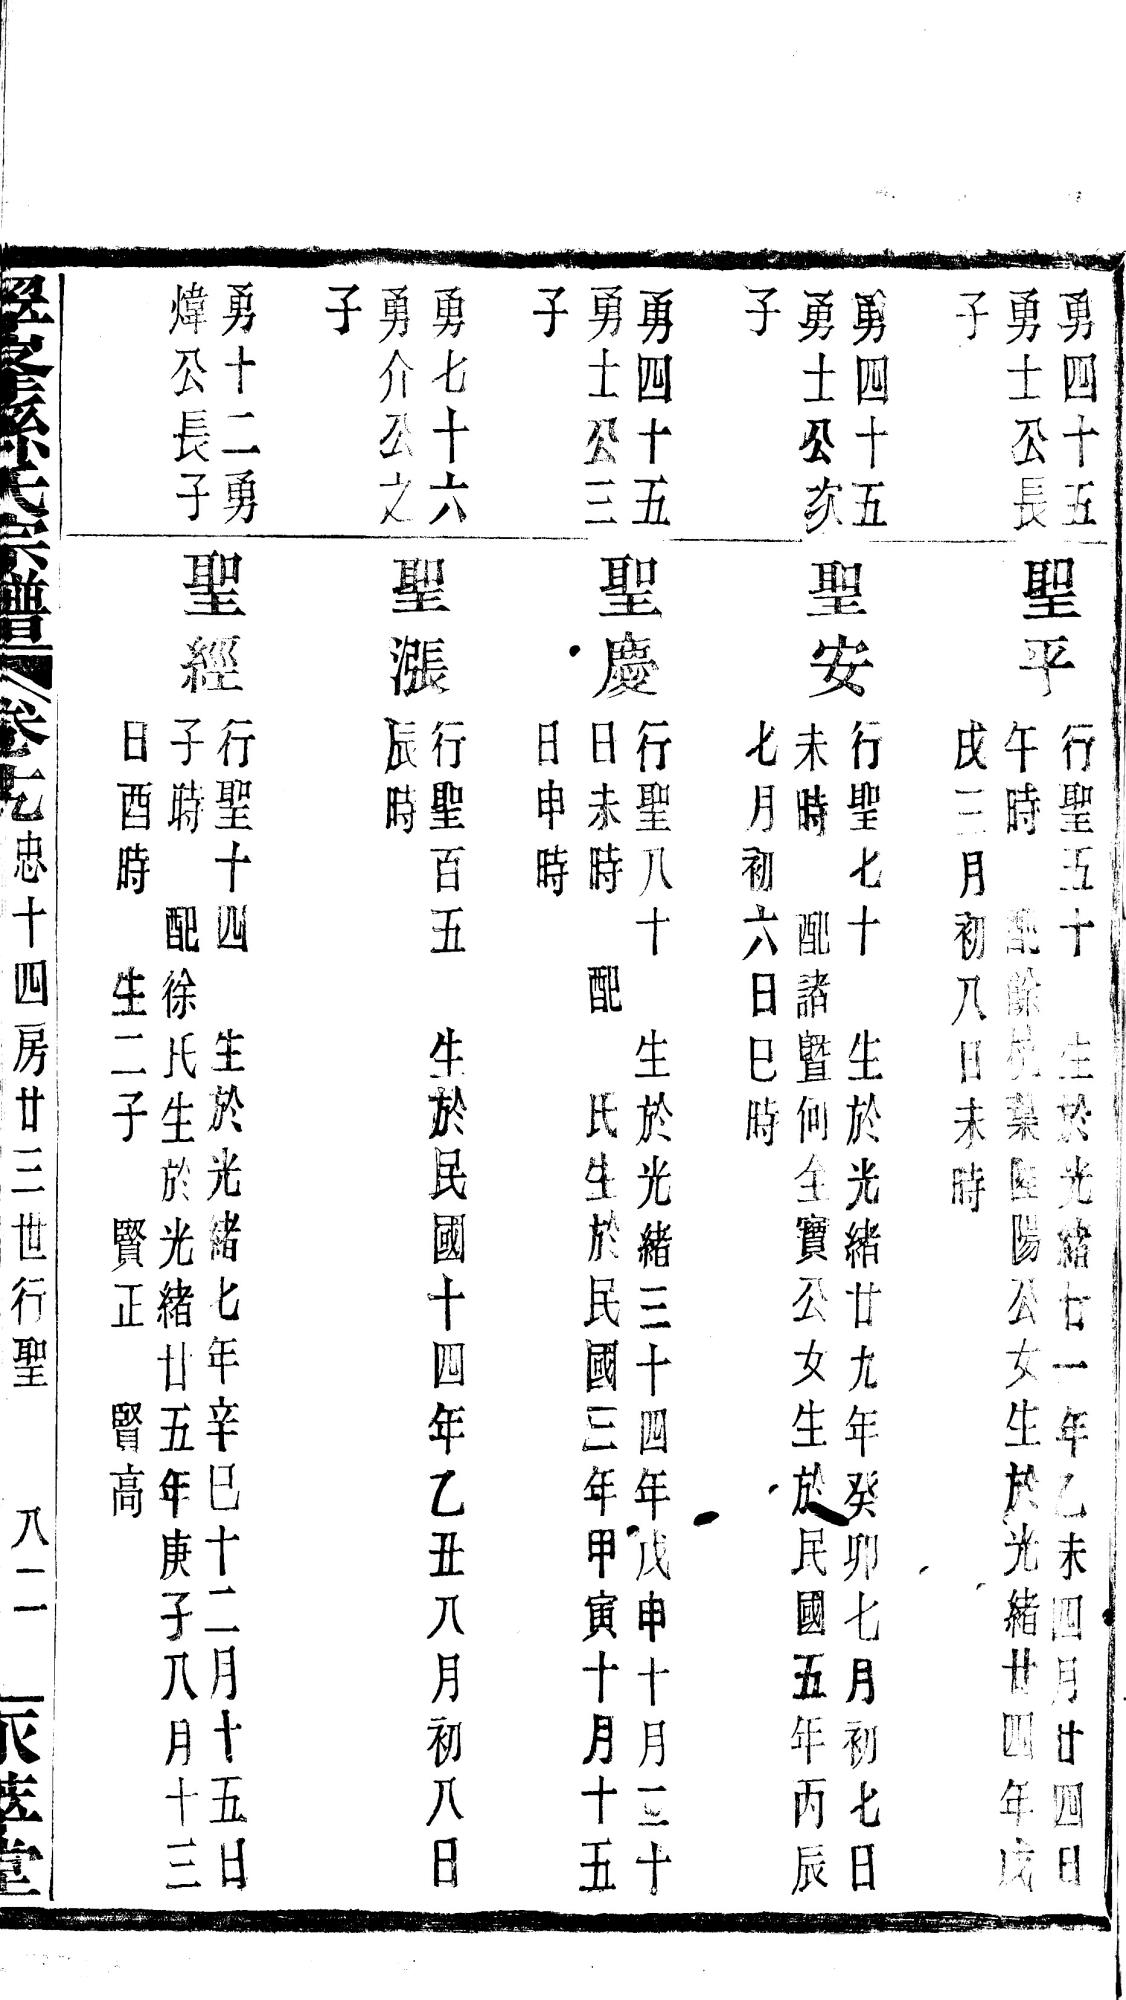 勇四十五
勇士公長
子
聖平
行聖五十 生於光緒廿一年乙未四月廿四日
午時 配餘姚葉 陽公女生於光緒廿四年戊
戌三月初八日未時
勇四十五
勇士公次
子
聖安
行聖七十 生於光緒廿九年癸卯七月初七日
未時 配諸暨何全寶公女生於民國五年丙辰
七月初六日巳時
勇四十五
勇士公三
子
聖慶
行聖八十 生於光緒三十四年戊申十月三十
日未時 配 氏生於民國三年甲寅十月十五
日申時
勇七十六
勇介公之
子
聖漲
行聖百五 生於民國十四年乙丑八月初八日
辰時
勇十二勇
煒公長子
聖經
行聖十四 生於光緒七年辛巳十二月十五日
子時 配徐氏生於光緒廿五年庚子八月十三
日酉時 生二子 賢正 賢高
孫氏宗譜 卷七 忠十四房廿三世行聖 八二 堂